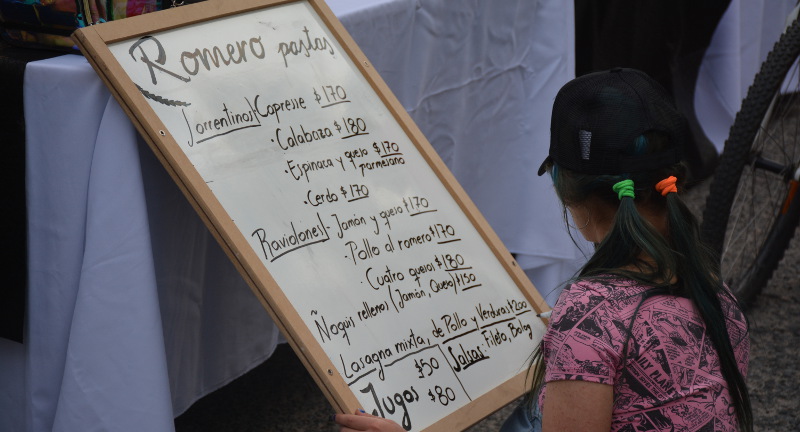 Romero pastas
Jorrentinos| Capresse $170
· Calabaza $180
· Espinaca y quejo $170
parmesano
· Cerdo $170
Raviolones|· Jamón y quejo $170
· Pollo al romero $170
· Cuatro quejos $180
Ñoquis rellenos (Jamón, Quejo) $150
Lasagna mixta, de Pollo y Verduras $200
$50 Salsas: Fileto, Bolog
Jugos $80